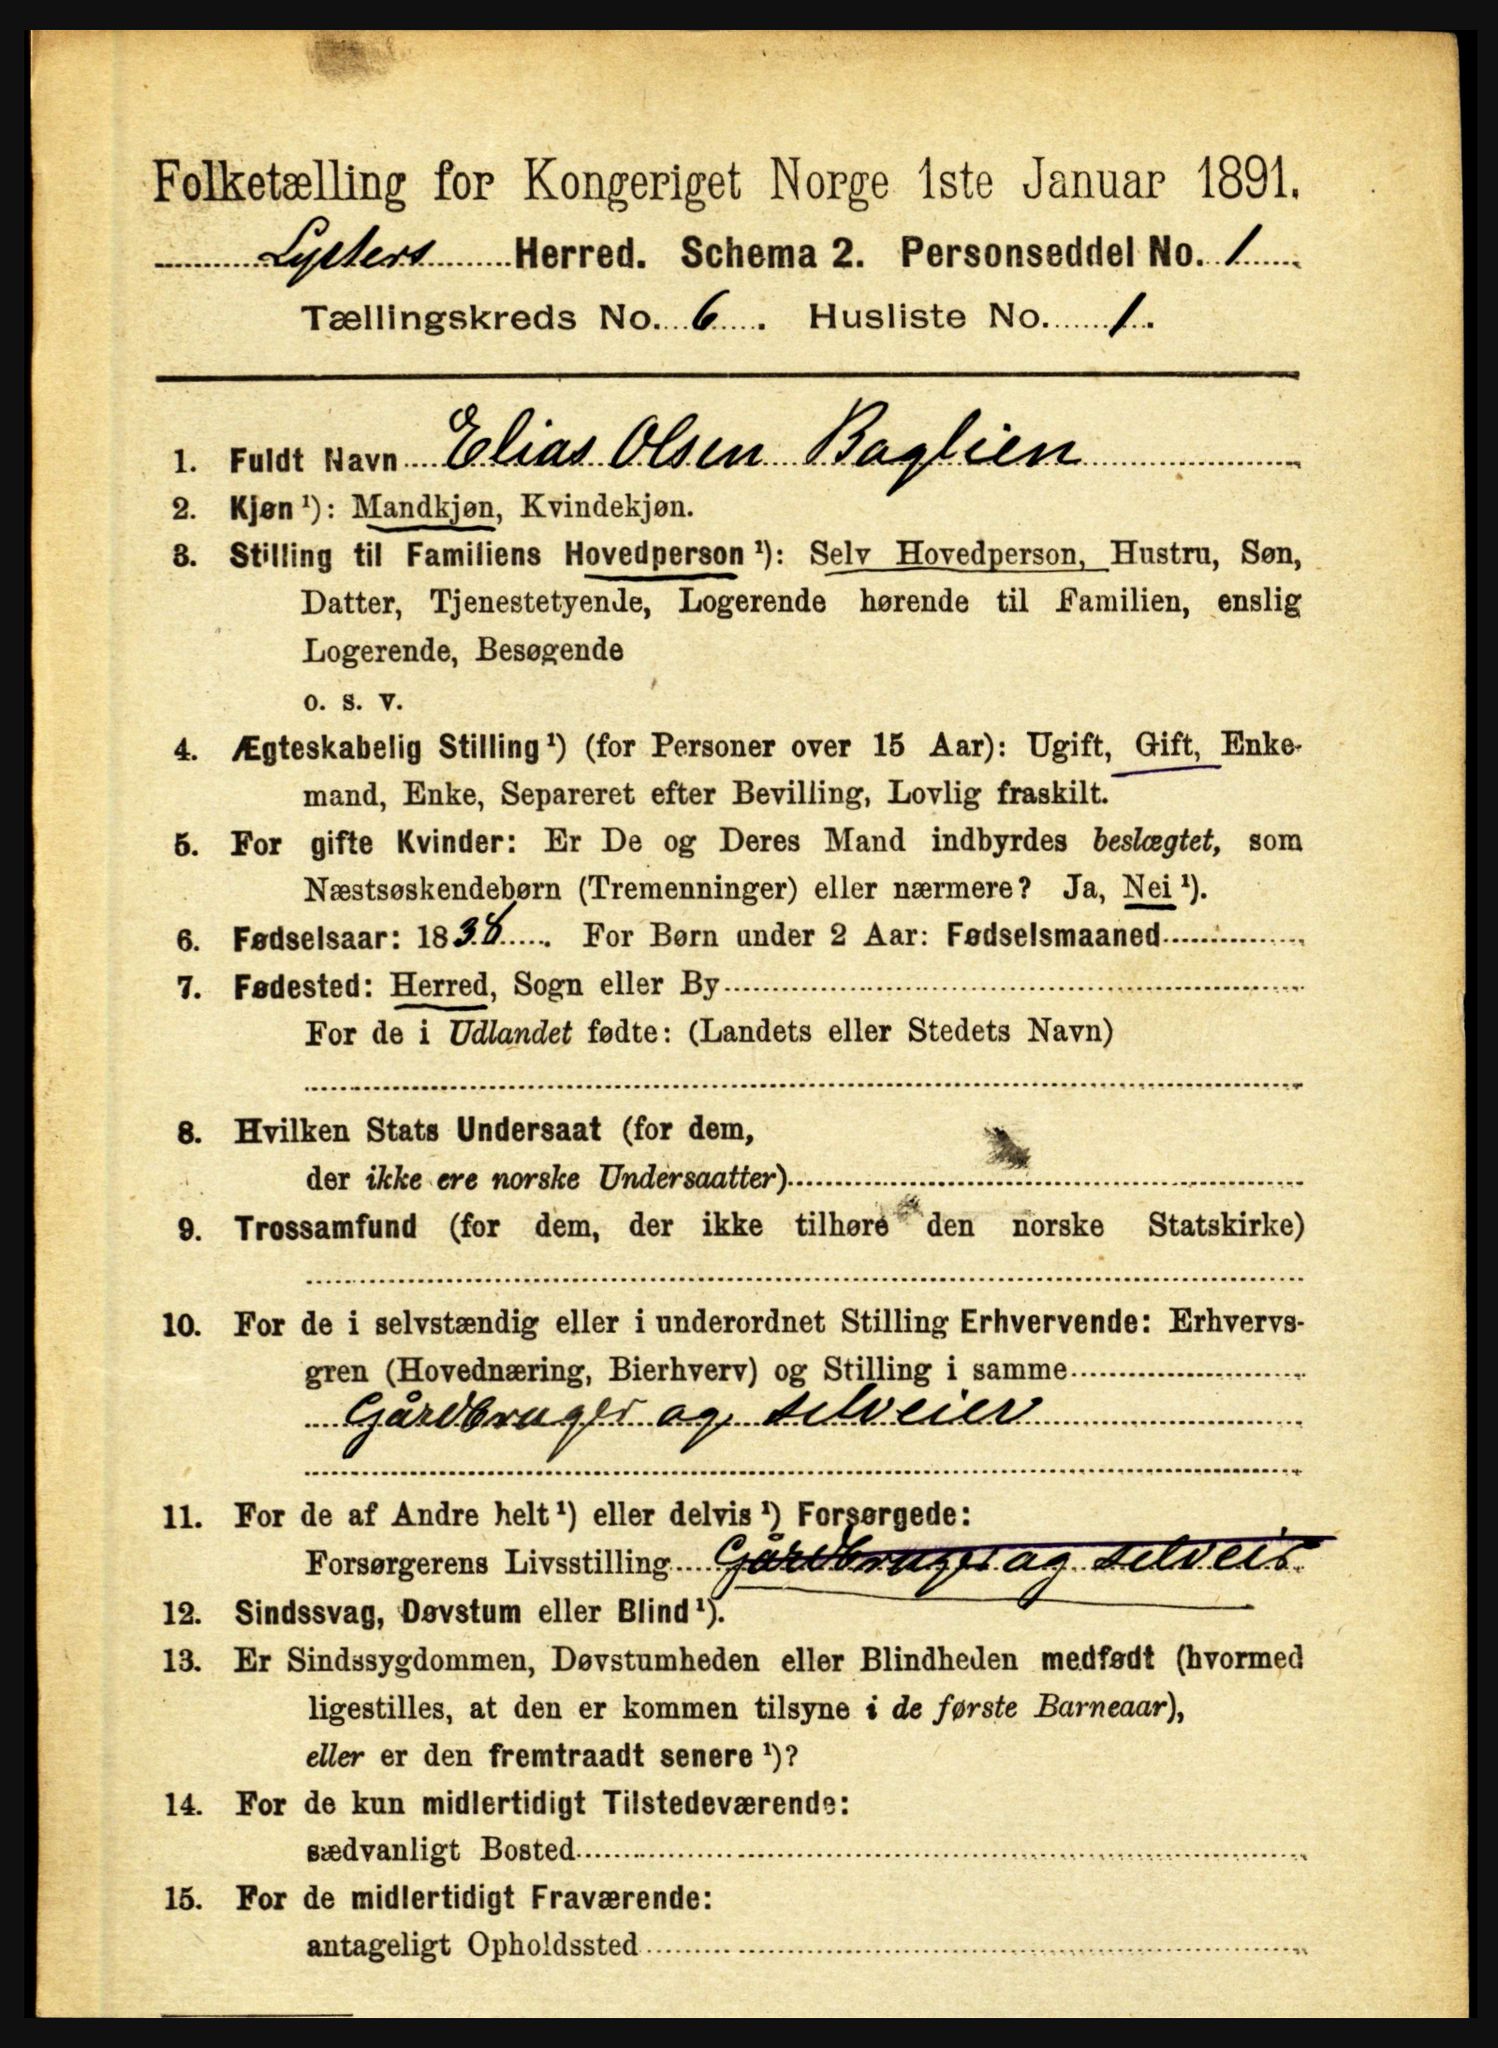 Folketælling for Kongeriget Norge 1ste Januar 1891.
Lysters Herred. Schema 2. Personseddel No. 1
Tællingskreds No. 6. Husliste No. 1.
1. Fuldt Navn Elias Olsen Baglien
2. Kjøn ¹): Mandkjøn, Kvindekjøn.
3. Stilling til Familiens Hovedperson ¹): Selv Hovedperson, Hustru, Søn,
Datter, Tjenestetyende, Logerende hørende til Familien, enslig
Logerende, Besøgende
o. s. v.
4. Ægteskabelig Stilling ¹) (for Personer over 15 Aar): Ugift, Gift, Enke-
mand, Enke, Separeret efter Bevilling, Lovlig fraskilt.
5. For gifte Kvinder: Er De og Deres Mand indbyrdes beslægtet, som
Næstsøskendebørn (Tremenninger) eller nærmere? Ja, Nei ¹).
6. Fødselsaar: 1838. For Børn under 2 Aar: Fødselsmaaned
7. Fødested: Herred, Sogn eller By
For de i Udlandet fødte: (Landets eller Stedets Navn)
8. Hvilken Stats Undersaat (for dem,
der ikke ere norske Undersaatter)
9. Trossamfund (for dem, der ikke tilhøre den norske Statskirke)
10. For de i selvstændig eller i underordnet Stilling Erhvervende: Erhvervs-
gren (Hovednæring, Bierhverv) og Stilling i samme
Gårdbruger og selveier
11. For de af Andre helt ¹) eller delvis ¹) Forsørgede:
Forsørgerens Livsstilling Gårdbruger og selveir
12. Sindssvag, Døvstum eller Blind ¹).
13. Er Sindssygdommen, Døvstumheden eller Blindheden medfødt (hvormed
ligestilles, at den er kommen tilsyne i de første Barneaar),
eller er den fremtraadt senere ¹)?
14. For de kun midlertidigt Tilstedeværende:
sædvanligt Bosted
15. For de midlertidigt Fraværende:
antageligt Opholdssted